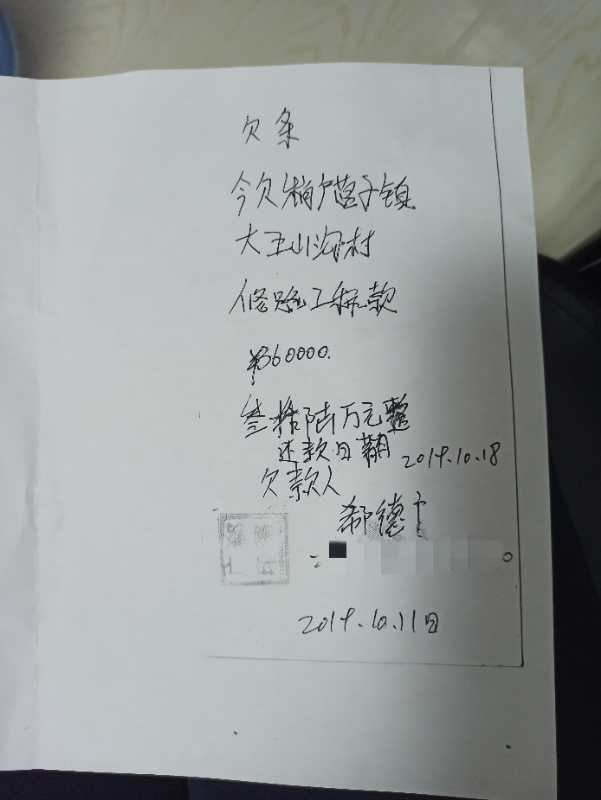 欠条
今欠梢户营子镇
大王山沟村
修路工程款
¥360000.
叁拾陆万元整
还款日期 2014.10.18
欠款人
郗德
2014.10.11日